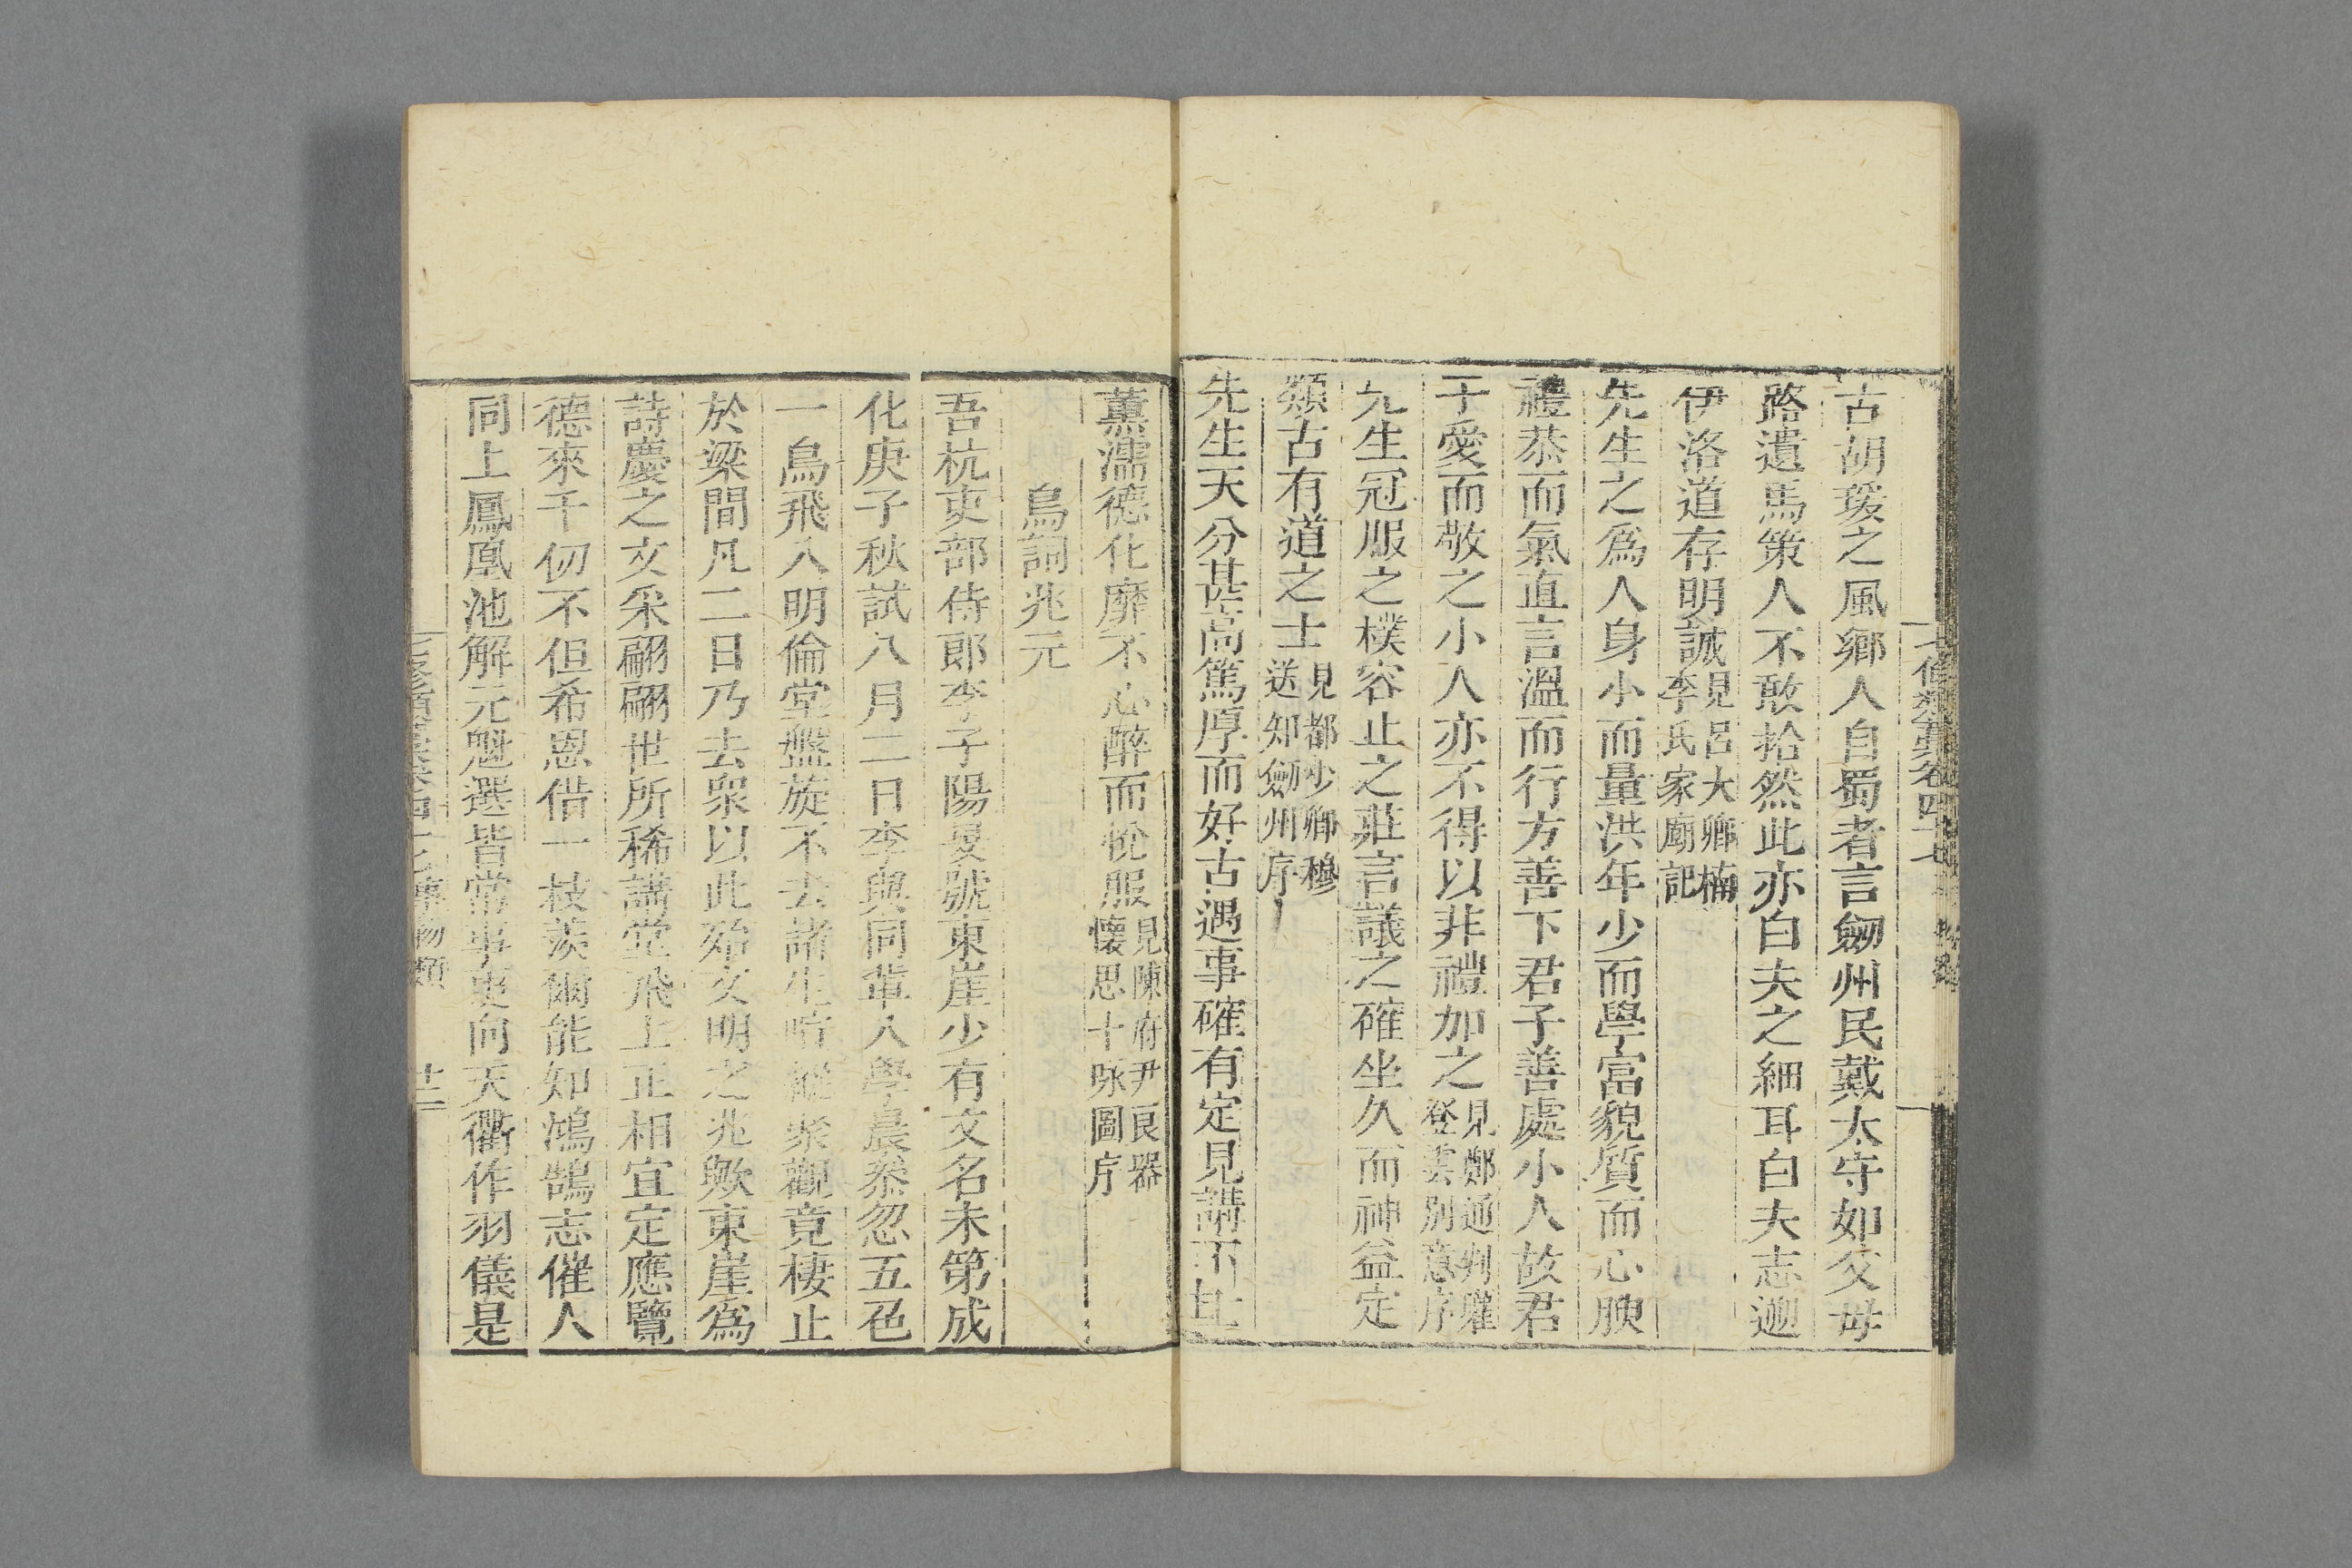 七修類藁卷四十七
古胡瑗之風鄉人自蜀者言劒州民戴太守如父母
路遺馬策人不敢拾然此亦白夫之細耳白夫志遡
伊洛道存明誠見呂大卿楠李氏家廟記
先生之爲人身小而量洪年少而學富貌質而心腴
禮恭而氣直言溫而行方善下君子善處小人故君
于愛而敬之小人亦不得以非禮加之見鄭通判瓘登雲別意序
先生冠服之樸容止之莊言議之確坐久而神益定
類古有道之士見都少卿穆送知劒州序
先生天分甚高篤厚而好古遇事確有定見講不
薰濡德化靡不心醉而悅服見陳府尹良器懷思十咏圖序
鳥詞兆元
吾杭吏部侍郎李子陽旻號東崖少有文名未第成
化庚子秋試八月二日李與同輩入學晨叅忽五色
一鳥飛入明倫堂盤旋不去諸生喧縱聚觀竟棲止
於梁間凡二日乃去衆以此殆文明之兆歟東崖爲
詩慶之文采翩翩世所稀講堂飛上正相宜定應覽
德來千仞不但希恩借一枝羨爾能知鴻鵠志催人
同上鳳凰池解元魁選皆常事更向天衢作羽儀是
事物類